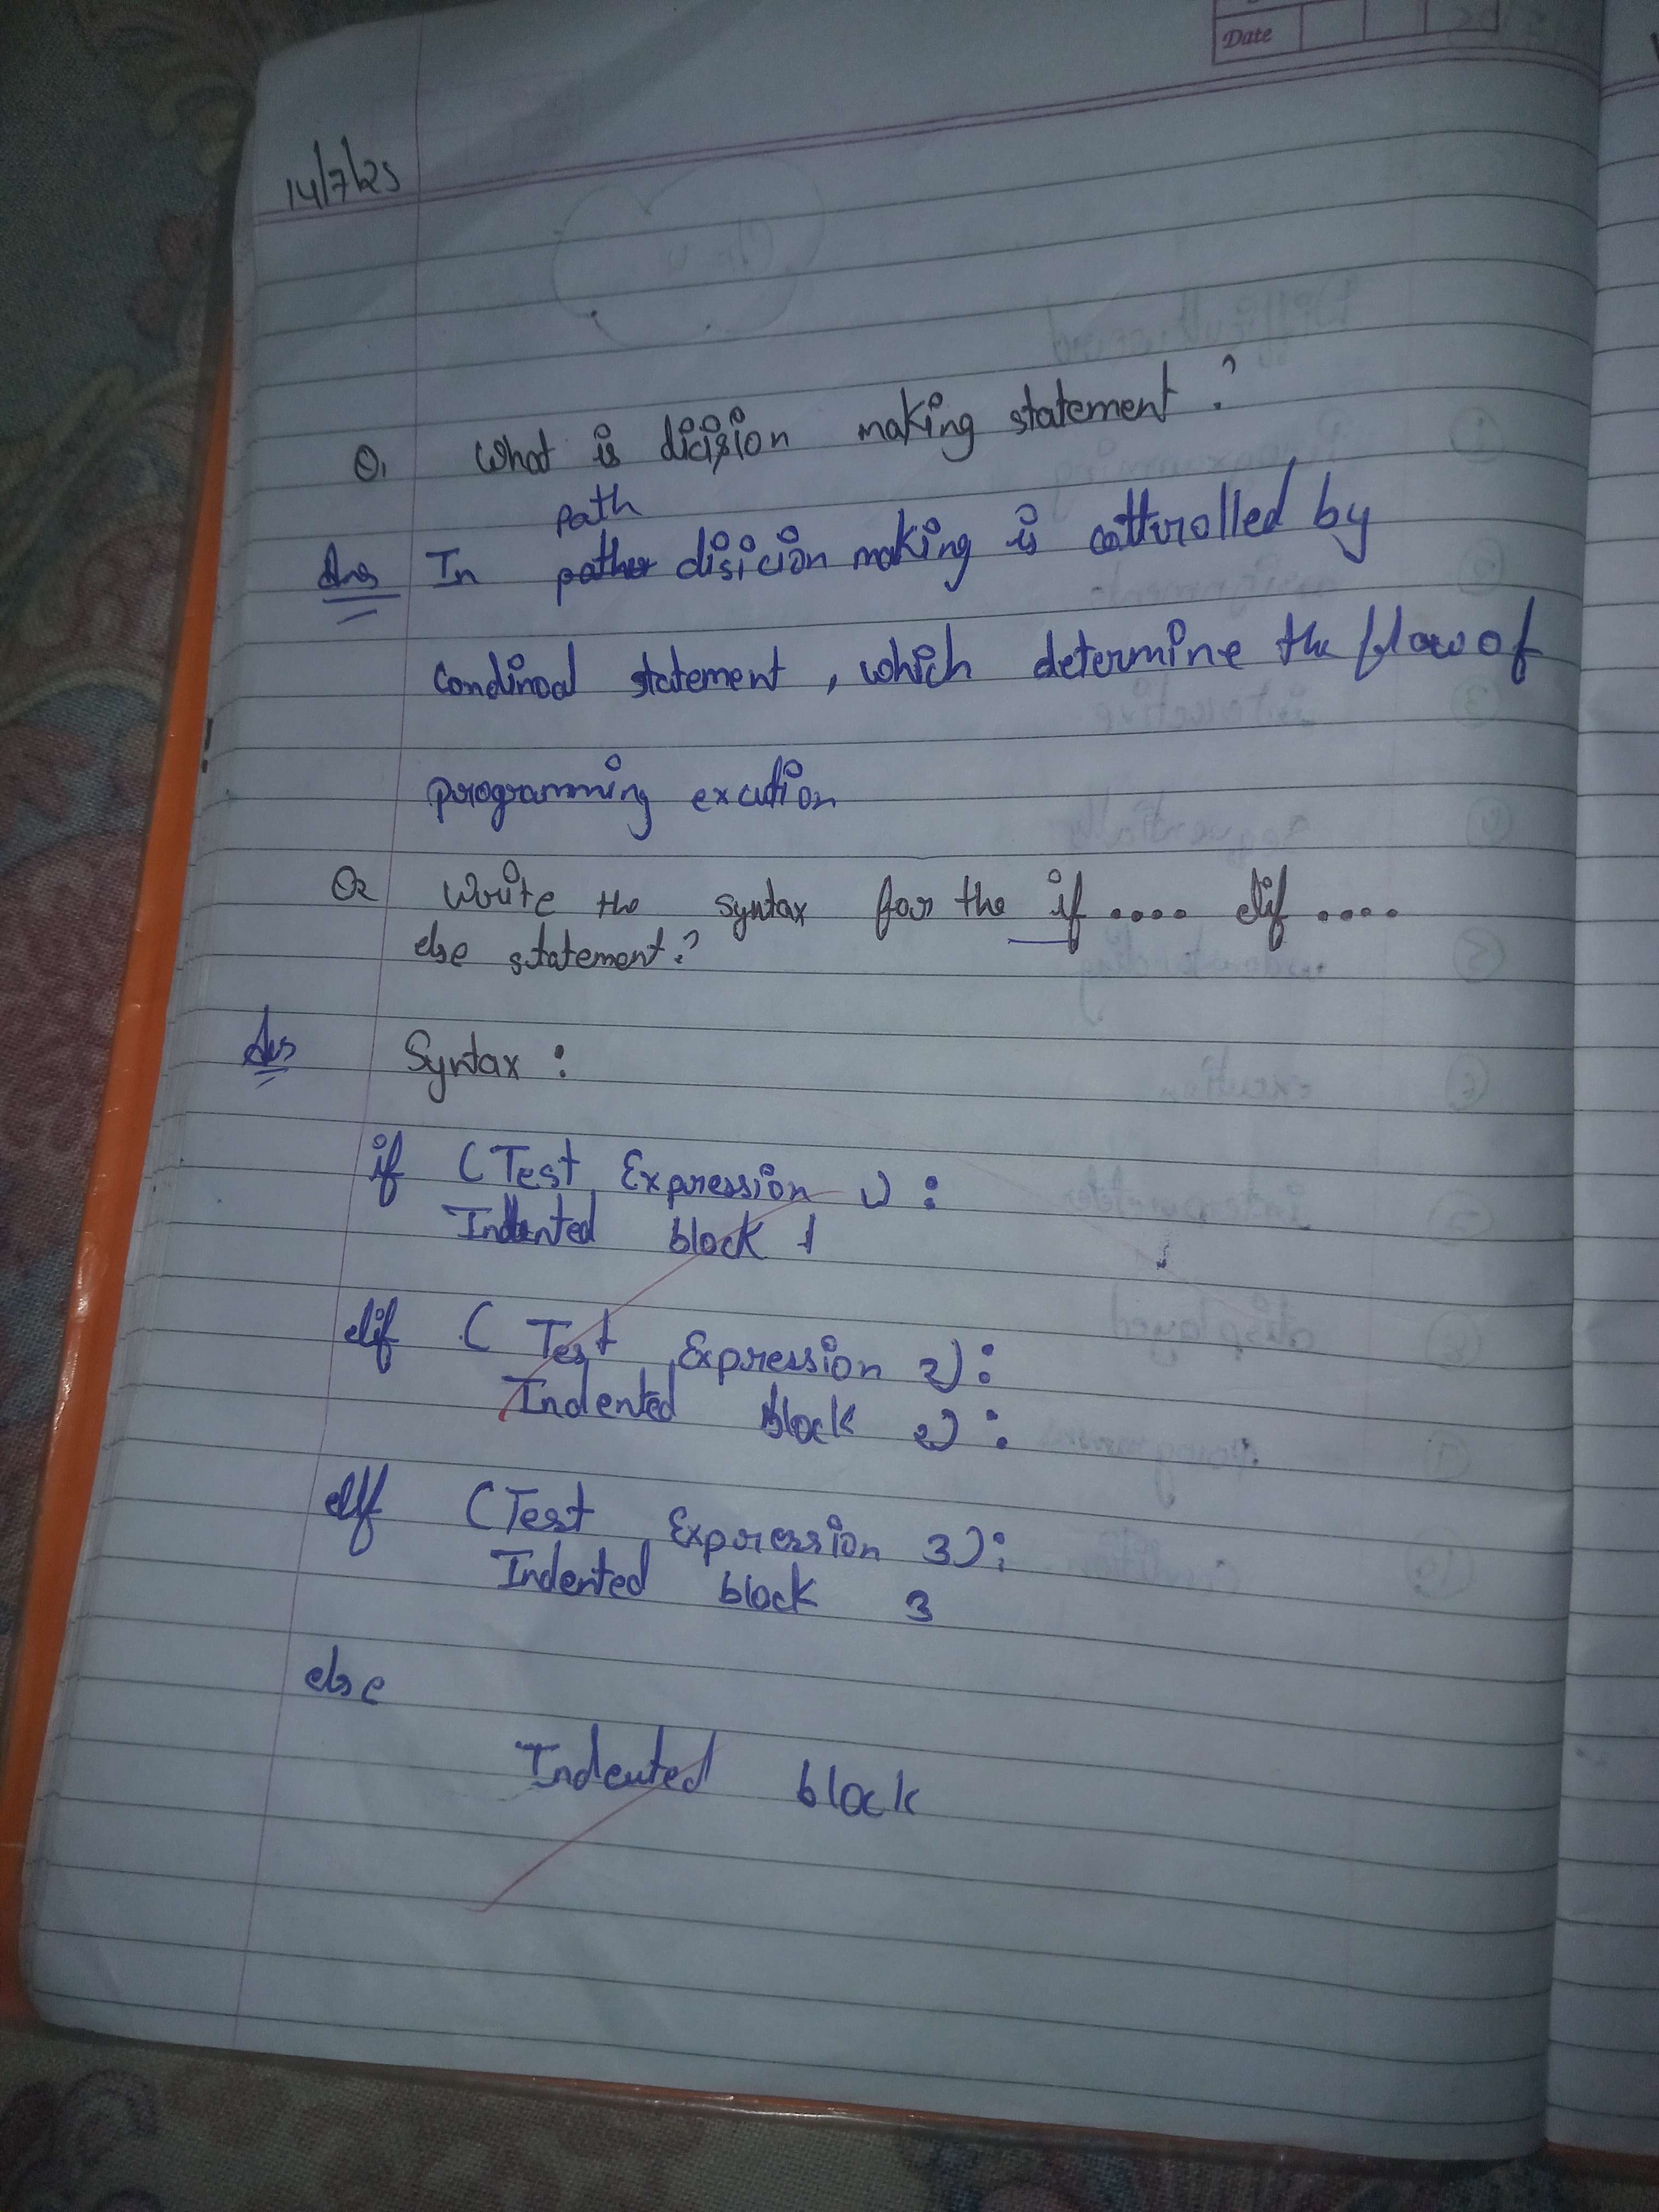 Date
14/7/25
Q1 What is dicision making statement?
path
Ans In disicion making is cotturolled by
condinoal statement, which determine the flow of
programming excution
Q2 Write the syntax for the if .... elif ....
else statement?
Ans Syntax :
if (Test Expression 1) :
Indented block 1
elif ( Test Expression 2) :
Indented block 2) :
elif (Test Expression 3) :
Indented block 3
else
Indented block